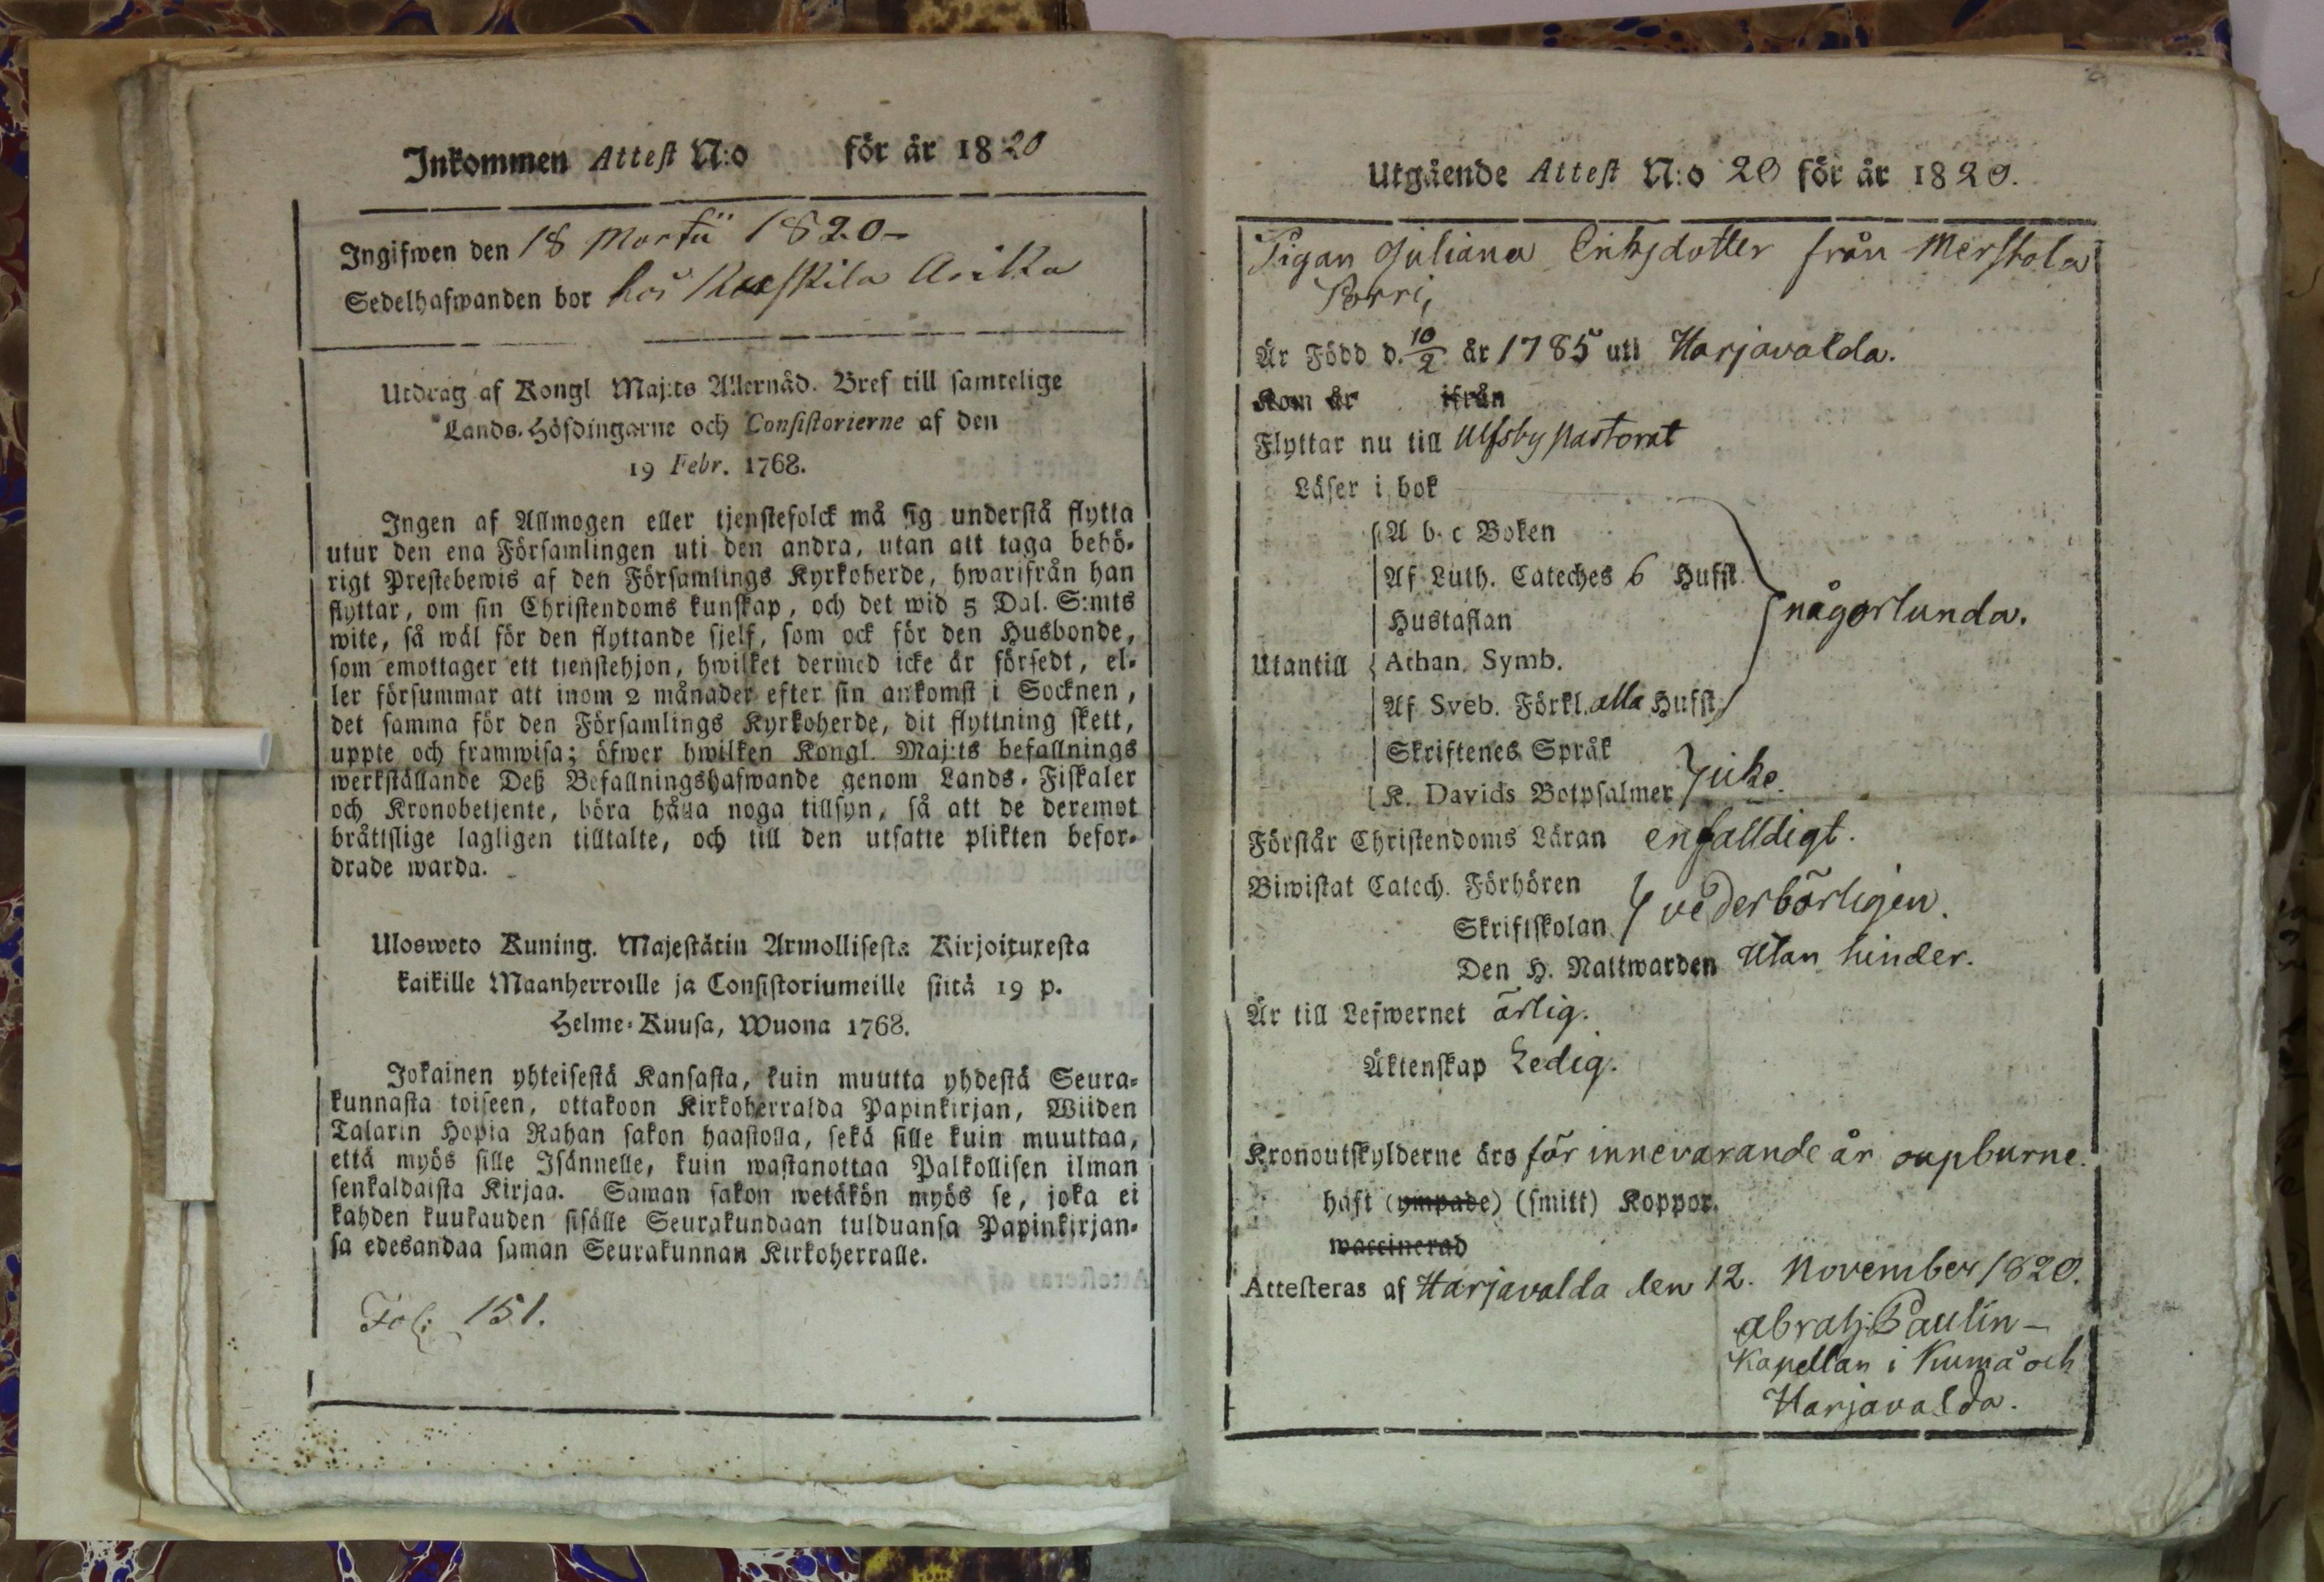 Inkommen Attest N:o för år 1820
Ingifwen den 18 Martii 1820 –
Sedelhafwanden bor hos Arika
Utdrag af Kongl Maj:ts Allernåd. Bref till samtelige
Lands-Höfdingarne och Consistorierne af den
19 Febr. 1768.
Ingen af Allmogen eller tjenstefolck må sig understå flytta
utur den ena Församlingen uti den andra, utan att taga behö-
rigt Prestebewis af den Församlings Kyrkoherde, hwarifrån han
flyttar, om sin Christendoms kunskap, och det wid 5 Dal. S:mts
wite, så wäl för den flyttande sjelf, som ock för den Husbonde,
som emottager ett tienstehjon, hwilket dermed icke är försedt, el-
ler försummar att inom 2 månader efter sin ankomst i Socknen,
det samma för den Församlings Kyrkoherde, dit flyttning skett,
uppte och framwisa; öfwer hwilken Kongl. Maj:ts befallnings
werkställande Deß Befallningshafwande genom Lands-Fiskaler
och Kronobetjente, böra hålla noga tillsyn, så att de deremot
bråtlslige lagligen tilltalte, och till den utsatte plikten befor-
drade warda.
Ulosweto Kuning. Majestätin Armollisesta Kirjoituxesta
kaikille Maanherroille ja Consistoriumeille siitä 19 p.
Helme-Kuusa, Wuona 1768.
Jokainen yhteisestä Kansasta, kuin muutta yhdestä Seura-
kunnasta toiseen, ottakoon Kirkoherralda Papinkirjan, Wiiden
Talarin Hopia Rahan sakon haastolla, sekä sille kuin muuttaa,
että myös sille Isännelle, kuin wastanottaa Palkollisen ilman
senkaldaista Kirjaa. Saman sakon wetäkön myös se, joka ei
kahden kuukauden sisälle Seurakundaan tulduansa Papinkirjan-
sa edesandaa saman Seurakunnan Kirkoherralle.
Fol: 151.
Utgående Attest N:o 20 för år 1820.
Pigan Juliana Eriksdotter från Merstola
Porri,
Är Född d. 10/2 år 1785 uti Harjavalda.
Kom år ifrån
Flyttar nu till Ulfsby pastorat
Läser i bok
A b. c Boken
Af Luth. Cateches 6 Hufst.
Hustaflan någorlunda.
Utantill Athan. Symb.
Af Sveb. Förkl. alla Hufst.
Skriftenes Språk
K. Davids Botpsalmer icke.
Förstår Christendoms Läran enfalldigt.
Biwistat Catech. Förhören
Skriftskolan vederbörligen.
Den H. Nattwarden Utan hinder.
Är till Lefwernet ärlig.
Äktenskap Ledig.
Kronoutskylderne äro för innevarande år oupburne.
haft (ympade) (smitt) Koppor.
waccinerad
Attesteras af Harjavalda den 12. November 1820.
Abrah. Paulin –
Kapellan i Kumå och
Harjavalda.